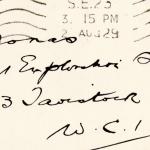 S.E.25
3. 15 PM
2 AUG 29
Jonas
Exploration
3 Tavistock
W.C.1